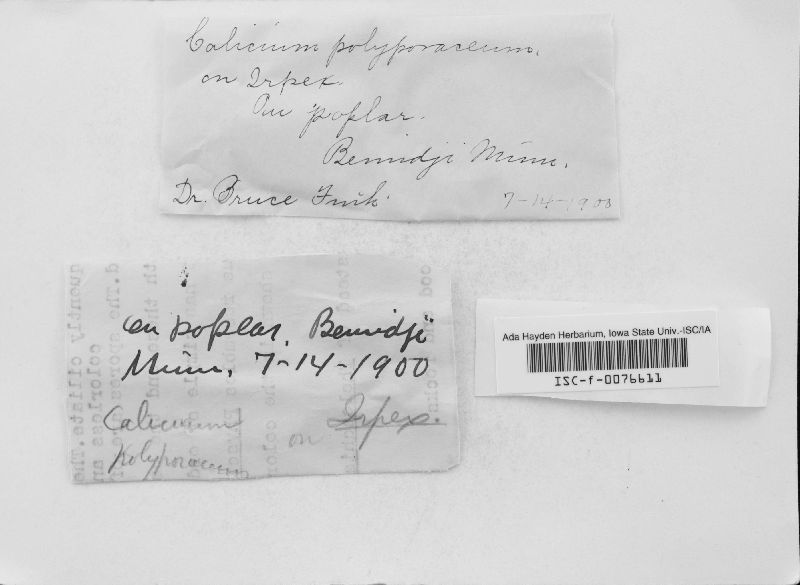 Calicium polyporaceum.
on Irpex.
On poplar.
Bemidji Minn.
Dr. Bruce Fink.
7-14-1900
on poplar, Bemidji
Minn. 7-14-1900
Calicium
polyporaceum
on Irpex.
Ada Hayden Herbarium, Iowa State Univ.-ISC/IA
ISC-f-0076611